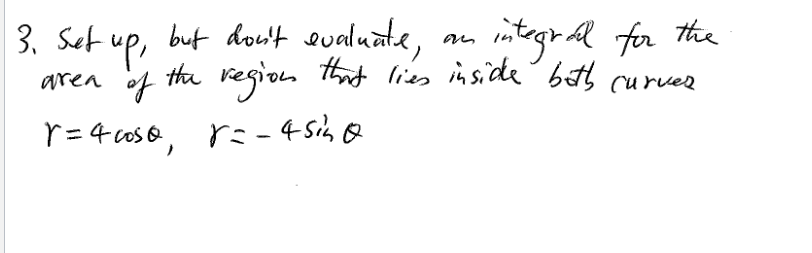 3. Set up, but don't evaluate, an integral for the
area of the region that lies inside both curves
r = 4 cos θ, r = - 4 sin θ